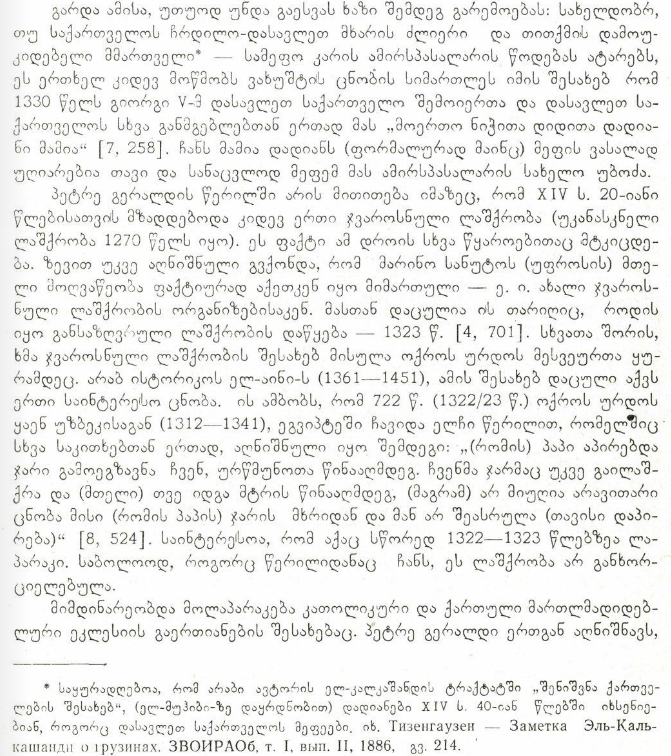 გარდა ამისა, უთუოდ უნდა გაესვას ხაზი შემდეგ გარემოებას: სახელდობრ,
თუ საქართველოს ჩრდილო-დასავლეთ მხარის ძლიერი და თითქმის დამოუ-
კიდებელი მმართველი* — სამეფო კარის ამირსპასალარის წოდებას ატარებს,
ეს ერთხელ კიდევ მოწმობს ვახუშტის ცნობის სიმართლეს იმის შესახებ რომ
1330 წელს გიორგი V-მ დასავლეთ საქართველო შემოიერთა და დასავლეთ სა-
ქართველოს სხვა განმგებლებთან ერთად მას „მოერთო ნიჭითა დიდითა დადია-
ნი მამია“ [7, 258]. ჩანს მამია დადიანს (ფორმალურად მაინც) მეფის ვასალად
უღიარებია თავი და სანაცვლოდ მეფემ მას ამირსპასალარის სახელო უბოძა.
პეტრე გერალდის წერილში არის მითითება იმაზეც, რომ XIV ს. 20-იანი
წლებისათვის მზადდებოდა კიდევ ერთი ჯვაროსნული ლაშქრობა (უკანასკნელი
ლაშქრობა 1270 წელს იყო). ეს ფაქტი ამ დროის სხვა წყაროებითაც მტკიცდე-
ბა. ზევით უკვე აღნიშნული გვქონდა, რომ მარინო სანუტოს (უფროსის) მთე-
ლი მოღვაწეობა ფაქტიურად აქეთკენ იყო მიმართული — ე. ი. ახალი ჯვაროს-
ნული ლაშქრობის ორგანიზებისაკენ. მასთან დაცულია ის თარიღიც, როდის
იყო განსაზღვრული ლაშქრობის დაწყება — 1323 წ. [4, 701]. სხვათა შორის,
ხმა ჯვაროსნული ლაშქრობის შესახებ მისულა ოქროს ურდოს მესვეურთა ყუ-
რამდეც. არაბ ისტორიკოს ელ-აინი-ს (1361—1451), ამის შესახებ დაცული აქვს
ერთი საინტერესო ცნობა. ის ამბობს, რომ 722 წ. (1322/23 წ.) ოქროს ურდოს
ყაენ უზბეკისაგან (1312—1341), ეგვიპტეში ჩავიდა ელჩი წერილით, რომელშიც
სხვა საკითხებთან ერთად, აღნიშნული იყო შემდეგი: „(რომის) პაპი აპირებდა
ჯარი გამოეგზავნა ჩვენ, ურწმუნოთა წინააღმდეგ. ჩვენმა ჯარმაც უკვე გაილაშ-
ქრა და (მთელი) თვე იდგა მტრის წინააღმდეგ, (მაგრამ) არ მიუღია არავითარი
ცნობა მისი (რომის პაპის) ჯარის მხრიდან და მან არ შეასრულა (თავისი დაპი-
რება)“ [8, 524]. საინტერესოა, რომ აქაც სწორედ 1322—1323 წლებზეა ლა-
პარაკი. საბოლოოდ, როგორც წერილიდანაც ჩანს, ეს ლაშქრობა არ განხორ-
ციელებულა.
მიმდინარეობდა მოლაპარაკება კათოლიკური და ქართული მართლმადიდებ-
ლური ეკლესიის გაერთიანების შესახებაც. პეტრე გერალდი ერთგან აღნიშნავს,
* საყურადღებოა, რომ არაბი ავტორის ელ-კალკაშანდის ტრაქტატში „შენიშვნა ქართვე-
ლების შესახებ“, (ელ-მუჰიბი-ზე დაყრდნობით) დადიანები XIV ს. 40-იან წლებში იხსენიე-
ბიან, როგორც დასავლეთ საქართველოს მეფეები. იხ. Тизенгаузен — Заметка Эль-Каль-
кашанди о грузинах. ЗВОИРАОб, т. I, вып. II, 1886, გვ. 214.